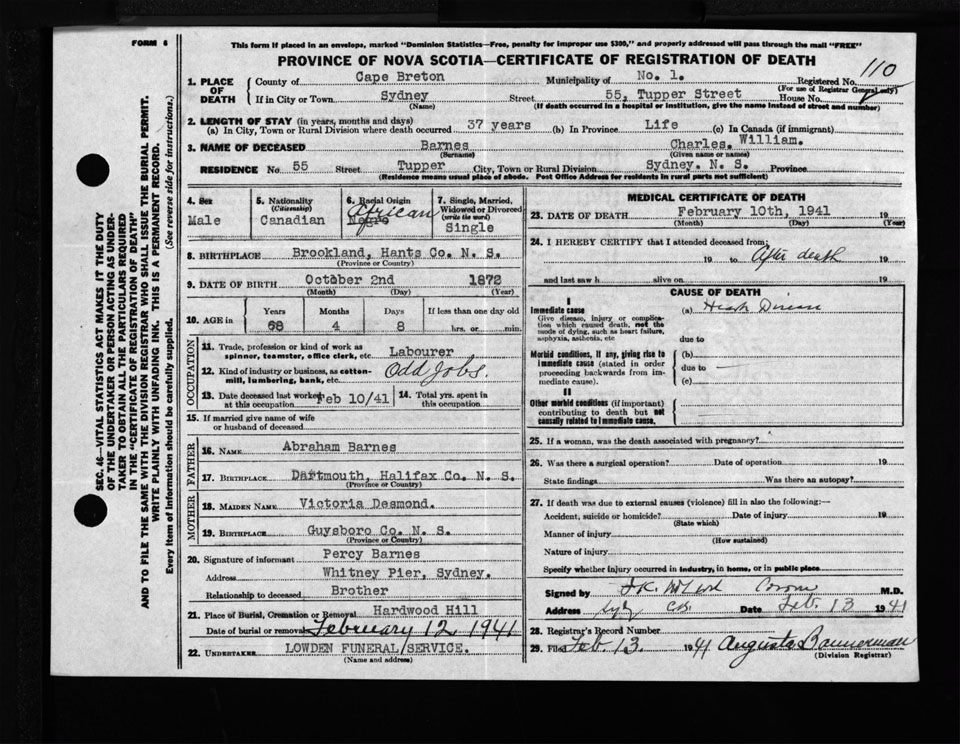 FORM 6
This form if placed in an envelope, marked "Dominion Statistics—Free, penalty for improper use $300," and properly addressed will pass through the mail "FREE"
PROVINCE OF NOVA SCOTIA—CERTIFICATE OF REGISTRATION OF DEATH
110
1. PLACE OF DEATH
County of Cape Breton Municipality of No. 1. Registered No.
(For use of Registrar General only)
If in City or Town Sydney Street 55, Tupper Street House No.
(Name) (If death occurred in a hospital or institution, give the name instead of street and number)
2. LENGTH OF STAY (in years, months and days)
(a) In City, Town or Rural Division where death occurred 37 years (b) In Province Life (c) In Canada (if immigrant)
3. NAME OF DECEASED Barnes Charles. William.
(Surname) (Given name or names)
RESIDENCE No 55 Street Tupper City, Town or Rural Division Sydney. N. S. Province
(Residence means usual place of abode. Post Office Address for residents in rural parts not sufficient)
4. Sex
Male
5. Nationality
(Citizenship)
Canadian
6. Racial Origin
African
Negro
7. Single, Married, Widowed or Divorced
(write the word)
Single
8. BIRTHPLACE Brookland, Hants Co. N. S.
(Province or Country)
9. DATE OF BIRTH October 2nd 1872
(Month) (Day) (Year)
10. AGE in Years Months Days If less than one day old
68 4 8 hrs. or min.
OCCUPATION
11. Trade, profession or kind of work as spinner, teamster, office clerk, etc. Labourer
12. Kind of industry or business, as cotton-mill, lumbering, bank, etc. Odd Jobs.
13. Date deceased last worked at this occupation Feb 10/41 14. Total yrs. spent in this occupation
15. If married give name of wife or husband of deceased
FATHER
16. NAME Abraham Barnes
17. BIRTHPLACE Dartmouth, Halifax Co. N. S.
(Province or Country)
MOTHER
18. MAIDEN NAME Victoria Desmond.
19. BIRTHPLACE Guysboro Co. N. S.
(Province or Country)
20. Signature of informant Percy Barnes
Address Whitney Pier, Sydney.
Relationship to deceased Brother
21. Place of Burial, Cremation or Removal Hardwood Hill
Date of burial or removal February 12 1941
22. UNDERTAKER LOWDEN FUNERAL/SERVICE.
(Name and address)
MEDICAL CERTIFICATE OF DEATH
23. DATE OF DEATH February 10th, 1941 19
(Month) (Day) (Year)
24. I HEREBY CERTIFY that I attended deceased from:
19 to After death
and last saw h alive on 19
CAUSE OF DEATH
I
Immediate cause (a)
Give disease, injury or complication which caused death, not the mode of dying, such as heart failure, asphyxia, asthenia, etc
due to
Morbid conditions, if any, giving rise to immediate cause (stated in order proceeding backwards from immediate cause).
(b)
due to
(c)
II
Other morbid conditions (if important) contributing to death but not causally related to immediate cause.
25. If a woman, was the death associated with pregnancy?
26. Was there a surgical operation? Date of operation 19
State findings Was there an autopsy?
27. If death was due to external causes (violence) fill in also the following:—
Accident, suicide or homicide? Date of injury 19
(State which)
Manner of injury
(How sustained)
Nature of injury
Specify whether injury occurred in industry, in home, or in public place
Signed by M.D.
Address Date Feb. 13 1941
28. Registrar's Record Number
29. Filed Feb. 13. 1941 Augusta Bannerman
(Division Registrar)
SEC. 46—VITAL STATISTICS ACT MAKES IT THE DUTY
OF THE UNDERTAKER OR PERSON ACTING AS UNDER-
TAKER TO OBTAIN ALL THE PARTICULARS REQUIRED
IN THE "CERTIFICATE OF REGISTRATION OF DEATH"
AND TO FILE THE SAME WITH THE DIVISION REGISTRAR WHO SHALL ISSUE THE BURIAL PERMIT.
WRITE PLAINLY WITH UNFADING INK. THIS IS A PERMANENT RECORD.
Every item of information should be carefully supplied. (See reverse side for instructions.)